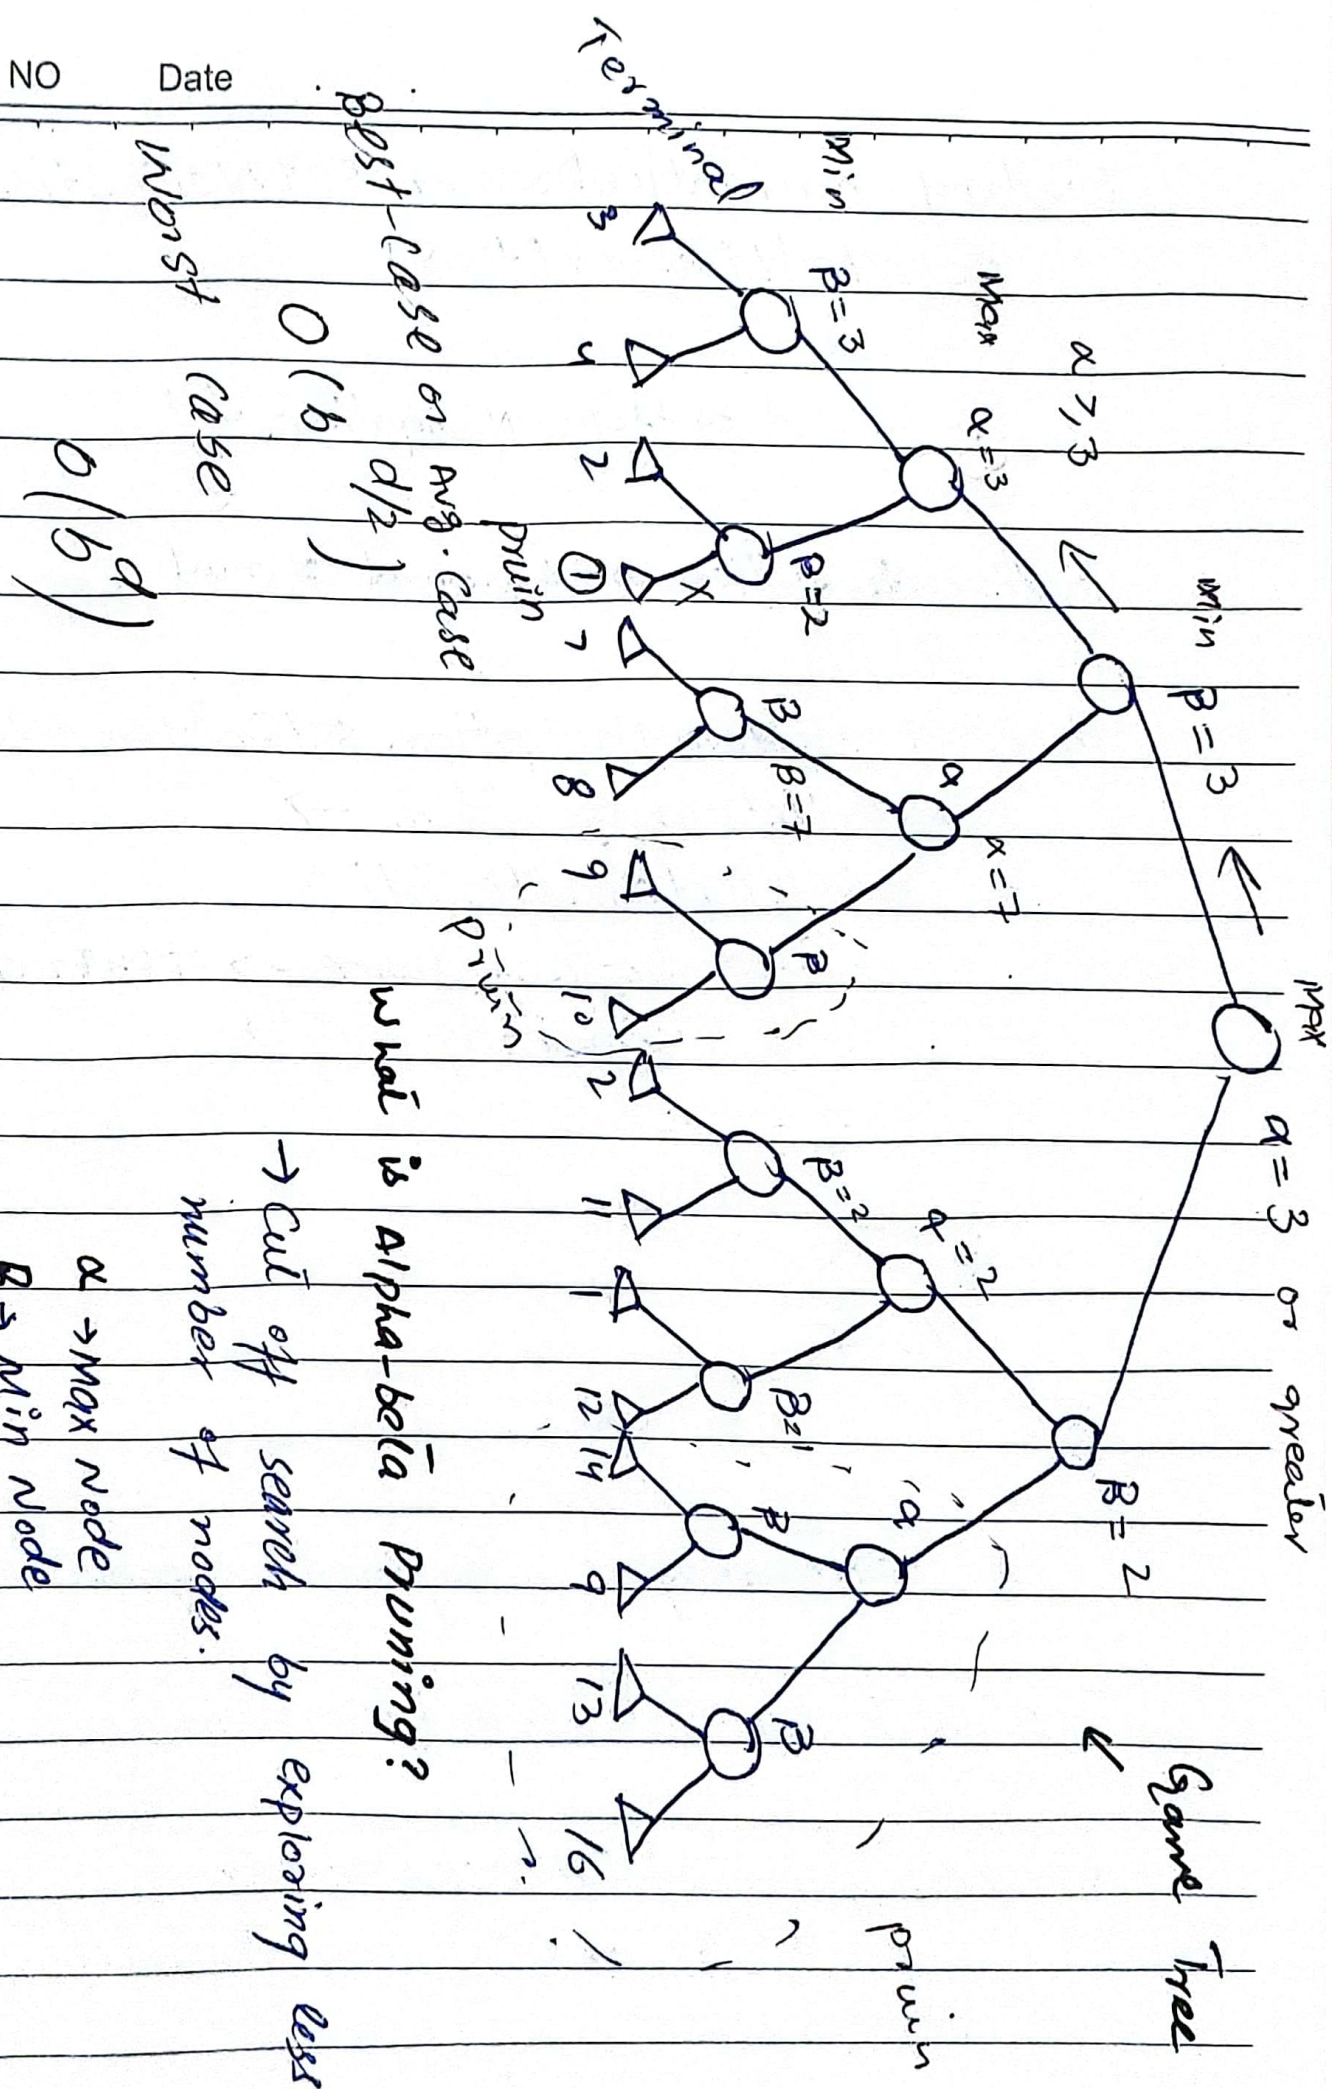 NO
Date
Game Tree
Max
α = 3 or greater
Min
β = 3
β = 2
α ≥ 3
Max
α = 3
α
α = 7
α = 2
α
Min
β = 3
β = 2
β
β = 7
β
β = 2
β = 1
β
β
Terminal
3 4 2 ① 7 8 9 10 2 11 1 12 14 9 13 16
X
pruin
pruin
pruin
Best-Case or Avg. Case
O(b d/2)
Worst Case
O(b^d)
What is Alpha-beta Pruning?
→ Cut off search by exploring less
number of nodes.
α → Max Node
β → Min Node